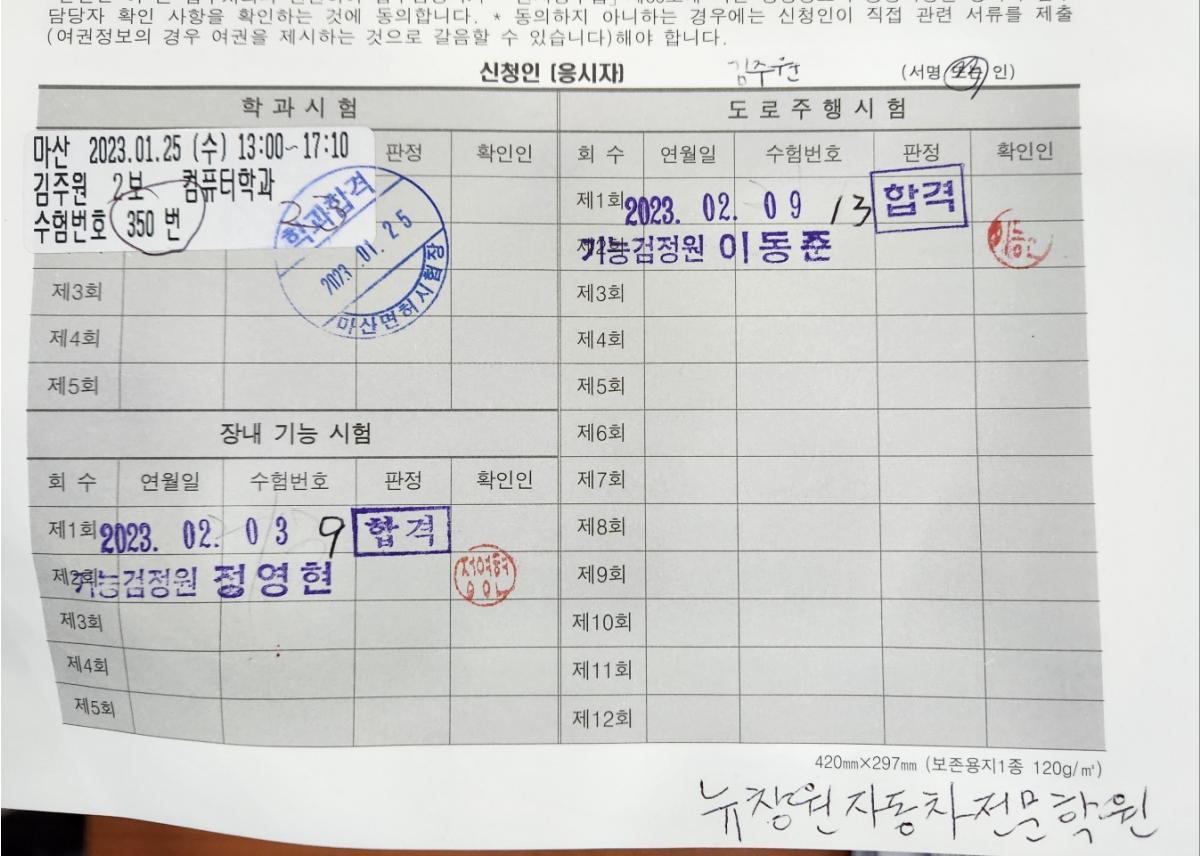 담당자 확인 사항을 확인하는 것에 동의합니다. * 동의하지 아니하는 경우에는 신청인이 직접 관련 서류를 제출
(여권정보의 경우 여권을 제시하는 것으로 갈음할 수 있습니다)해야 합니다.
신청인 (응시자) 김주원 (서명 또는 인)
학 과 시 험
마산 2023.01.25 (수) 13:00~17:10 판정 확인인
김주원 2보 컴퓨터학과
수험번호 350 번
학과합격
2023 .01. 25
마산면허시험장
제3회
제4회
제5회
장내 기능 시험
회 수 연월일 수험번호 판정 확인인
제1회 2023. 02. 03 9 합격
제2회 기능검정원 정영현
제3회
제4회
제5회
도 로 주 행 시 험
회 수 연월일 수험번호 판정 확인인
제1회 2023. 02. 09 13 합격
제2회 기능검정원 이동준
제3회
제4회
제5회
제6회
제7회
제8회
제9회
제10회
제11회
제12회
420㎜×297㎜ (보존용지1종 120g/㎡)
뉴창원자동차전문학원